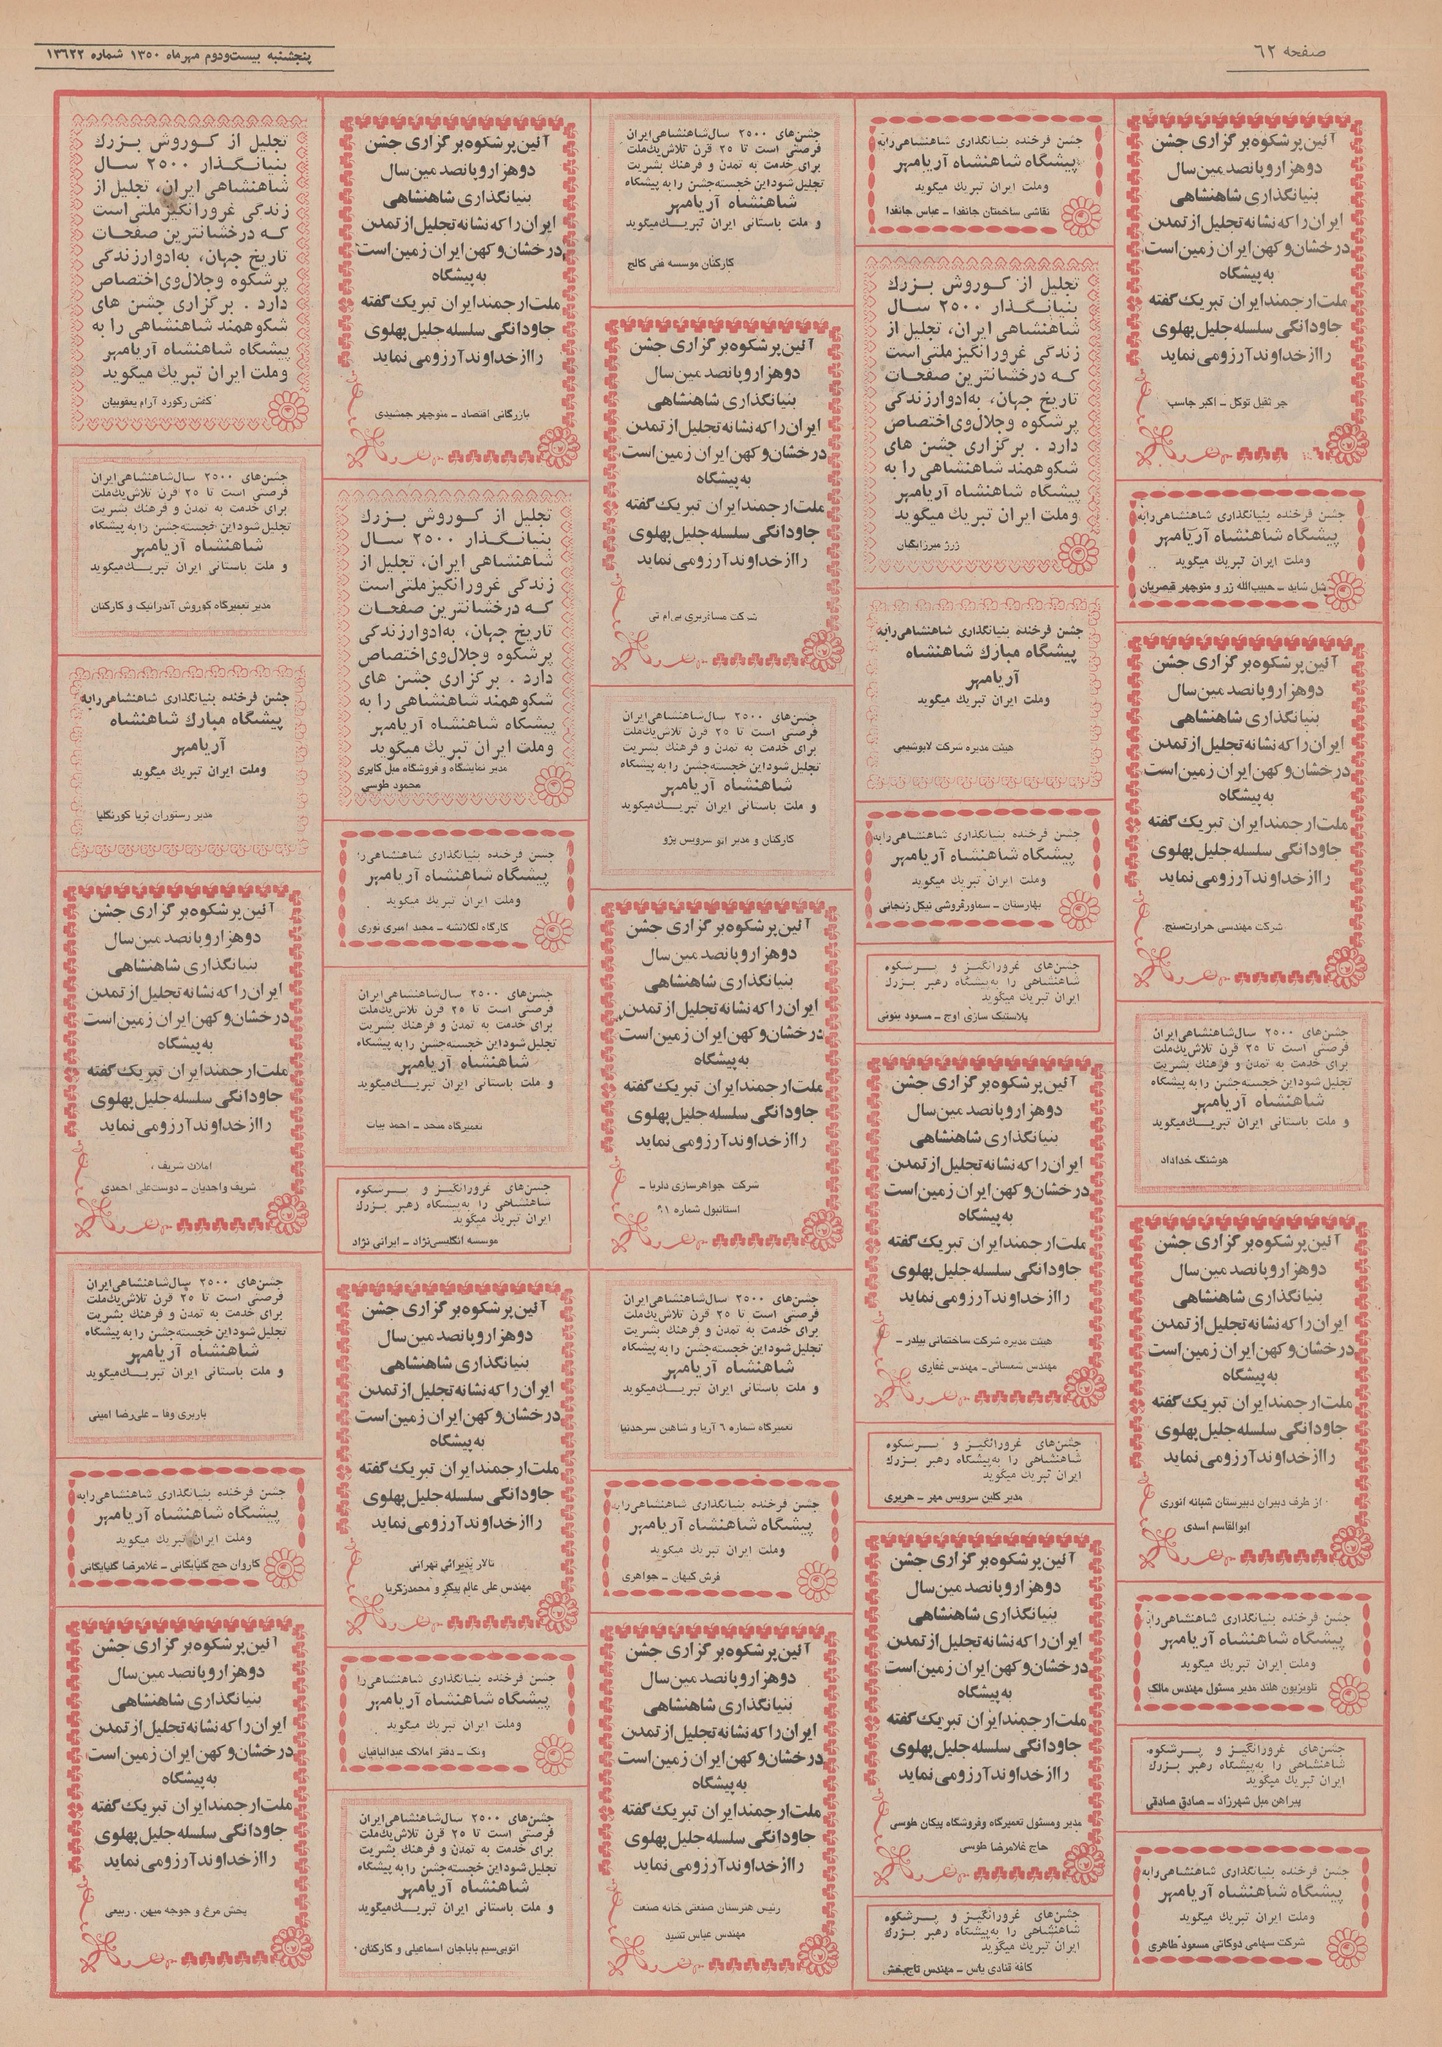 صفحه ۶۲
پنجشنبه بیست‌ودوم مهرماه ۱۳۵۰ شماره ۱۳۶۲۲
آئین پرشکوه برگزاری جشن
دوهزار و پانصدمین سال
بنیانگذاری شاهنشاهی
ایران را که نشانه تجلیل از تمدن
درخشان و کهن ایران زمین است
به پیشگاه
ملت ارجمند ایران تبریک گفته
جاودانگی سلسله جلیل پهلوی
را از خداوند آرزو می نماید
جر ثقیل توکل ــ اکبر جاسب
جشن فرخنده بنیانگذاری شاهنشاهی را به
پیشگاه شاهنشاه آریامهر
وملت ایران تبریك میگوید
مبل شاید ــ حبیب‌الله زر و منوچهر قیصریان
آئین پرشکوه برگزاری جشن
دوهزار و پانصدمین سال
بنیانگذاری شاهنشاهی
ایران را که نشانه تجلیل از تمدن
درخشان و کهن ایران زمین است
به پیشگاه
ملت ارجمند ایران تبریک گفته
جاودانگی سلسله جلیل پهلوی
را از خداوند آرزو می نماید
شرکت مهندسی حرارت‌سنج.
جشن‌های ۲۵۰۰ سال شاهنشاهی ایران
فرصتی است تا ۲۵ قرن تلاش یك ملت
برای خدمت به تمدن و فرهنك بشریت
تجلیل شود این خجسته جشن را به پیشگاه
شاهنشاه آریامهر
و ملت باستانی ایران تبریـك میگوید
هوشنگ خداداد
آئین پرشکوه برگزاری جشن
دوهزار و پانصدمین سال
بنیانگذاری شاهنشاهی
ایران را که نشانه تجلیل از تمدن
درخشان و کهن ایران زمین است
به پیشگاه
ملت ارجمند ایران تبریک گفته
جاودانگی سلسله جلیل پهلوی
را از خداوند آرزو می نماید
از طرف دبیران دبیرستان شبانه انوری
ابوالقاسم اسدی
جشن فرخنده بنیانگذاری شاهنشاهی را به
پیشگاه شاهنشاه آریامهر
وملت ایران تبریك میگوید
تلویزیون هلند مدیر مسئول مهندس مالک
جشن‌های غرورانگیـز و پـرشکوه
شاهنشاهی را به پیشگاه رهبر بـزرك
ایران تبریك میگوید
پیراهن مبل شهرزاد ــ صادق صادقی
جشن فرخنده بنیانگذاری شاهنشاهی را به
پیشگاه شاهنشاه آریامهر
وملت ایران تبریك میگوید
شرکت سهامی دوکاتی مسعود طاهری
جشن فرخنده بنیانگذاری شاهنشاهی را به
پیشگاه شاهنشاه آریامهر
وملت ایران تبریك میگوید
نقاشی ساختمان جانفدا ــ عباس جانفدا
تجلیل از کـوروش بـزرك
بنیانگـذار ۲۵۰۰ سـال
شاهنشاهی ایران، تجلیل از
زندگی غرورانگیز ملتی است
کـه درخشانترین صفحـات
تاریخ جهان، به‌ادوار زندگی
پرشکوه وجلال وی اختصاص
دارد . برگزاری جشن های
شکوهمند شاهنشاهی را به
پیشگاه شاهنشاه آریامهر
وملت ایران تبریك میگوید
ژرژ میرزاییان
جشن فرخنده بنیانگذاری شاهنشاهی را به
پیشگاه مبارك شاهنشاه
آریامهر
وملت ایران تبریك میگوید
هیئت مدیره شرکت لابوشیمی
جشن فرخنده بنیانگذاری شاهنشاهی را به
پیشگاه شاهنشاه آریامهر
وملت ایران تبریك میگوید
بهارستان ــ سماورفروشی نیکل زنجانی
جشن‌های غرورانگیـز و پـرشکوه
شاهنشاهی را به پیشگاه رهبر بـزرك
ایران تبریك میگوید
پلاستیک سازی اوج ــ مسعود بنونی
آئین پرشکوه برگزاری جشن
دوهزار و پانصدمین سال
بنیانگذاری شاهنشاهی
ایران را که نشانه تجلیل از تمدن
درخشان و کهن ایران زمین است
به پیشگاه
ملت ارجمند ایران تبریک گفته
جاودانگی سلسله جلیل پهلوی
را از خداوند آرزو می نماید
هیئت مدیره شرکت ساختمانی بیلدر ــ
مهندس شمسائی ــ مهندس غفاری
جشن‌های غرورانگیـز و پـرشکوه
شاهنشاهی را به پیشگاه رهبر بـزرك
ایران تبریك میگوید
مدیر کلین سرویس مهر ــ حریری
آئین پرشکوه برگزاری جشن
دوهزار و پانصدمین سال
بنیانگذاری شاهنشاهی
ایران را که نشانه تجلیل از تمدن
درخشان و کهن ایران زمین است
به پیشگاه
ملت ارجمند ایران تبریک گفته
جاودانگی سلسله جلیل پهلوی
را از خداوند آرزو می نماید
مدیر ومسئول تعمیرگاه وفروشگاه پیکان طوسی
حاج غلامرضا طوسی
جشن‌های غرورانگیـز و پـرشکوه
شاهنشاهی را به پیشگاه رهبر بـزرك
ایران تبریك میگوید
کافه قنادی یاس ــ مهندس تاج‌بخش
جشن‌های ۲۵۰۰ سال شاهنشاهی ایران
فرصتی است تا ۲۵ قرن تلاش یك ملت
برای خدمت به تمدن و فرهنك بشریت
تجلیل شود این خجسته جشن را به پیشگاه
شاهنشاه آریامهر
و ملت باستانی ایران تبریـك میگوید
کارکنان موسسه فنی کالج
آئین پرشکوه برگزاری جشن
دوهزار و پانصدمین سال
بنیانگذاری شاهنشاهی
ایران را که نشانه تجلیل از تمدن
درخشان و کهن ایران زمین است
به پیشگاه
ملت ارجمند ایران تبریک گفته
جاودانگی سلسله جلیل پهلوی
را از خداوند آرزو می نماید
شرکت مسافربری بی‌ام تی
جشن‌های ۲۵۰۰ سال شاهنشاهی ایران
فرصتی است تا ۲۵ قرن تلاش یك ملت
برای خدمت به تمدن و فرهنك بشریت
تجلیل شود این خجسته جشن را به پیشگاه
شاهنشاه آریامهر
و ملت باستانی ایران تبریـك میگوید
کارکنان و مدیر اتو سرویس پژو
آئین پرشکوه برگزاری جشن
دوهزار و پانصدمین سال
بنیانگذاری شاهنشاهی
ایران را که نشانه تجلیل از تمدن
درخشان و کهن ایران زمین است
به پیشگاه
ملت ارجمند ایران تبریک گفته
جاودانگی سلسله جلیل پهلوی
را از خداوند آرزو می نماید
شرکت جواهرسازی دلربا ــ
استانبول شماره ۹۱
جشن‌های ۲۵۰۰ سال شاهنشاهی ایران
فرصتی است تا ۲۵ قرن تلاش یك ملت
برای خدمت به تمدن و فرهنك بشریت
تجلیل شود این خجسته جشن را به پیشگاه
شاهنشاه آریامهر
و ملت باستانی ایران تبریـك میگوید
تعمیرگاه شماره ۶ آریا و شاهین سرحدنیا
جشن فرخنده بنیانگذاری شاهنشاهی را به
پیشگاه شاهنشاه آریامهر
وملت ایران تبریك میگوید
فرش کیهان ــ جواهری
آئین پرشکوه برگزاری جشن
دوهزار و پانصدمین سال
بنیانگذاری شاهنشاهی
ایران را که نشانه تجلیل از تمدن
درخشان و کهن ایران زمین است
به پیشگاه
ملت ارجمند ایران تبریک گفته
جاودانگی سلسله جلیل پهلوی
را از خداوند آرزو می نماید
رئیس هنرستان صنعتی خانه صنعت
مهندس عباس تشید
آئین پرشکوه برگزاری جشن
دوهزار و پانصدمین سال
بنیانگذاری شاهنشاهی
ایران را که نشانه تجلیل از تمدن
درخشان و کهن ایران زمین است
به پیشگاه
ملت ارجمند ایران تبریک گفته
جاودانگی سلسله جلیل پهلوی
را از خداوند آرزو می نماید
بازرگانی اقتصاد ــ منوچهر جمشیدی
تجلیل از کـوروش بـزرك
بنیانگـذار ۲۵۰۰ سـال
شاهنشاهی ایران، تجلیل از
زندگی غرورانگیز ملتی است
کـه درخشانترین صفحـات
تاریخ جهان، به‌ادوار زندگی
پرشکوه وجلال وی اختصاص
دارد . برگزاری جشن های
شکوهمند شاهنشاهی را به
پیشگاه شاهنشاه آریامهر
وملت ایران تبریك میگوید
مدیر نمایشگاه و فروشگاه مبل کابری
محمود طوسی
جشن فرخنده بنیانگذاری شاهنشاهی را
پیشگاه شاهنشاه آریامهر
وملت ایران تبریك میگوید
کارگاه لکلانشه ــ مجد امیری نوری
جشن‌های ۲۵۰۰ سال شاهنشاهی ایران
فرصتی است تا ۲۵ قرن تلاش یك ملت
برای خدمت به تمدن و فرهنك بشریت
تجلیل شود این خجسته جشن را به پیشگاه
شاهنشاه آریامهر
و ملت باستانی ایران تبریـك میگوید
تعمیرگاه متحد ــ احمد بیات
جشن‌های غرورانگیـز و پـرشکوه
شاهنشاهی را به پیشگاه رهبر بـزرك
ایران تبریك میگوید
موسسه انگلیسی‌نژاد ــ ایرانی نژاد
آئین پرشکوه برگزاری جشن
دوهزار و پانصدمین سال
بنیانگذاری شاهنشاهی
ایران را که نشانه تجلیل از تمدن
درخشان و کهن ایران زمین است
به پیشگاه
ملت ارجمند ایران تبریک گفته
جاودانگی سلسله جلیل پهلوی
را از خداوند آرزو می نماید
تالار پذیرائی تهرانی
مهندس علی عالم پیکر و محمد زکریا
جشن فرخنده بنیانگذاری شاهنشاهی را
پیشگاه شاهنشاه آریامهر
وملت ایران تبریك میگوید
ونک ــ دفتر املاک عبدالباقیان
جشن‌های ۲۵۰۰ سال شاهنشاهی ایران
فرصتی است تا ۲۵ قرن تلاش یك ملت
برای خدمت به تمدن و فرهنك بشریت
تجلیل شود این خجسته جشن را به پیشگاه
شاهنشاه آریامهر
و ملت باستانی ایران تبریـك میگوید
اتوبی‌سیم باباجان اسماعیلی و کارکنان
تجلیل از کـوروش بـزرك
بنیانگـذار ۲۵۰۰ سـال
شاهنشاهی ایران، تجلیل از
زندگی غرورانگیز ملتی است
کـه درخشانترین صفحـات
تاریخ جهان، به‌ادوار زندگی
پرشکوه وجلال وی اختصاص
دارد . برگزاری جشن های
شکوهمند شاهنشاهی را به
پیشگاه شاهنشاه آریامهر
وملت ایران تبریك میگوید
کفش رکورد آرام یعقوبیان
جشن‌های ۲۵۰۰ سال شاهنشاهی ایران
فرصتی است تا ۲۵ قرن تلاش یك ملت
برای خدمت به تمدن و فرهنك بشریت
تجلیل شود این خجسته جشن را به پیشگاه
شاهنشاه آریامهر
و ملت باستانی ایران تبریـك میگوید
مدیر تعمیرگاه کوروش آندرانیک و کارکنان
جشن فرخنده بنیانگذاری شاهنشاهی را به
پیشگاه مبارك شاهنشاه
آریامهر
وملت ایران تبریك میگوید
مدیر رستوران ثریا کورنگلیا
آئین پرشکوه برگزاری جشن
دوهزار و پانصدمین سال
بنیانگذاری شاهنشاهی
ایران را که نشانه تجلیل از تمدن
درخشان و کهن ایران زمین است
به پیشگاه
ملت ارجمند ایران تبریک گفته
جاودانگی سلسله جلیل پهلوی
را از خداوند آرزو می نماید
املاک شریف ،
شریف واجدیان ــ دوست‌علی احمدی
جشن‌های ۲۵۰۰ سال شاهنشاهی ایران
فرصتی است تا ۲۵ قرن تلاش یك ملت
برای خدمت به تمدن و فرهنك بشریت
تجلیل شود این خجسته جشن را به پیشگاه
شاهنشاه آریامهر
و ملت باستانی ایران تبریـك میگوید
باربری وفا ــ علی‌رضا امینی
جشن فرخنده بنیانگذاری شاهنشاهی را به
پیشگاه شاهنشاه آریامهر
وملت ایران تبریك میگوید
کاروان حج گلپایگانی ــ غلامرضا گلپایگانی
آئین پرشکوه برگزاری جشن
دوهزار و پانصدمین سال
بنیانگذاری شاهنشاهی
ایران را که نشانه تجلیل از تمدن
درخشان و کهن ایران زمین است
به پیشگاه
ملت ارجمند ایران تبریک گفته
جاودانگی سلسله جلیل پهلوی
را از خداوند آرزو می نماید
پخش مرغ و جوجه میهن . ربیعی